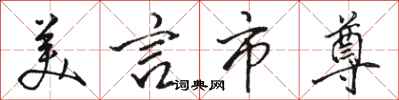 美言市尊
词典网